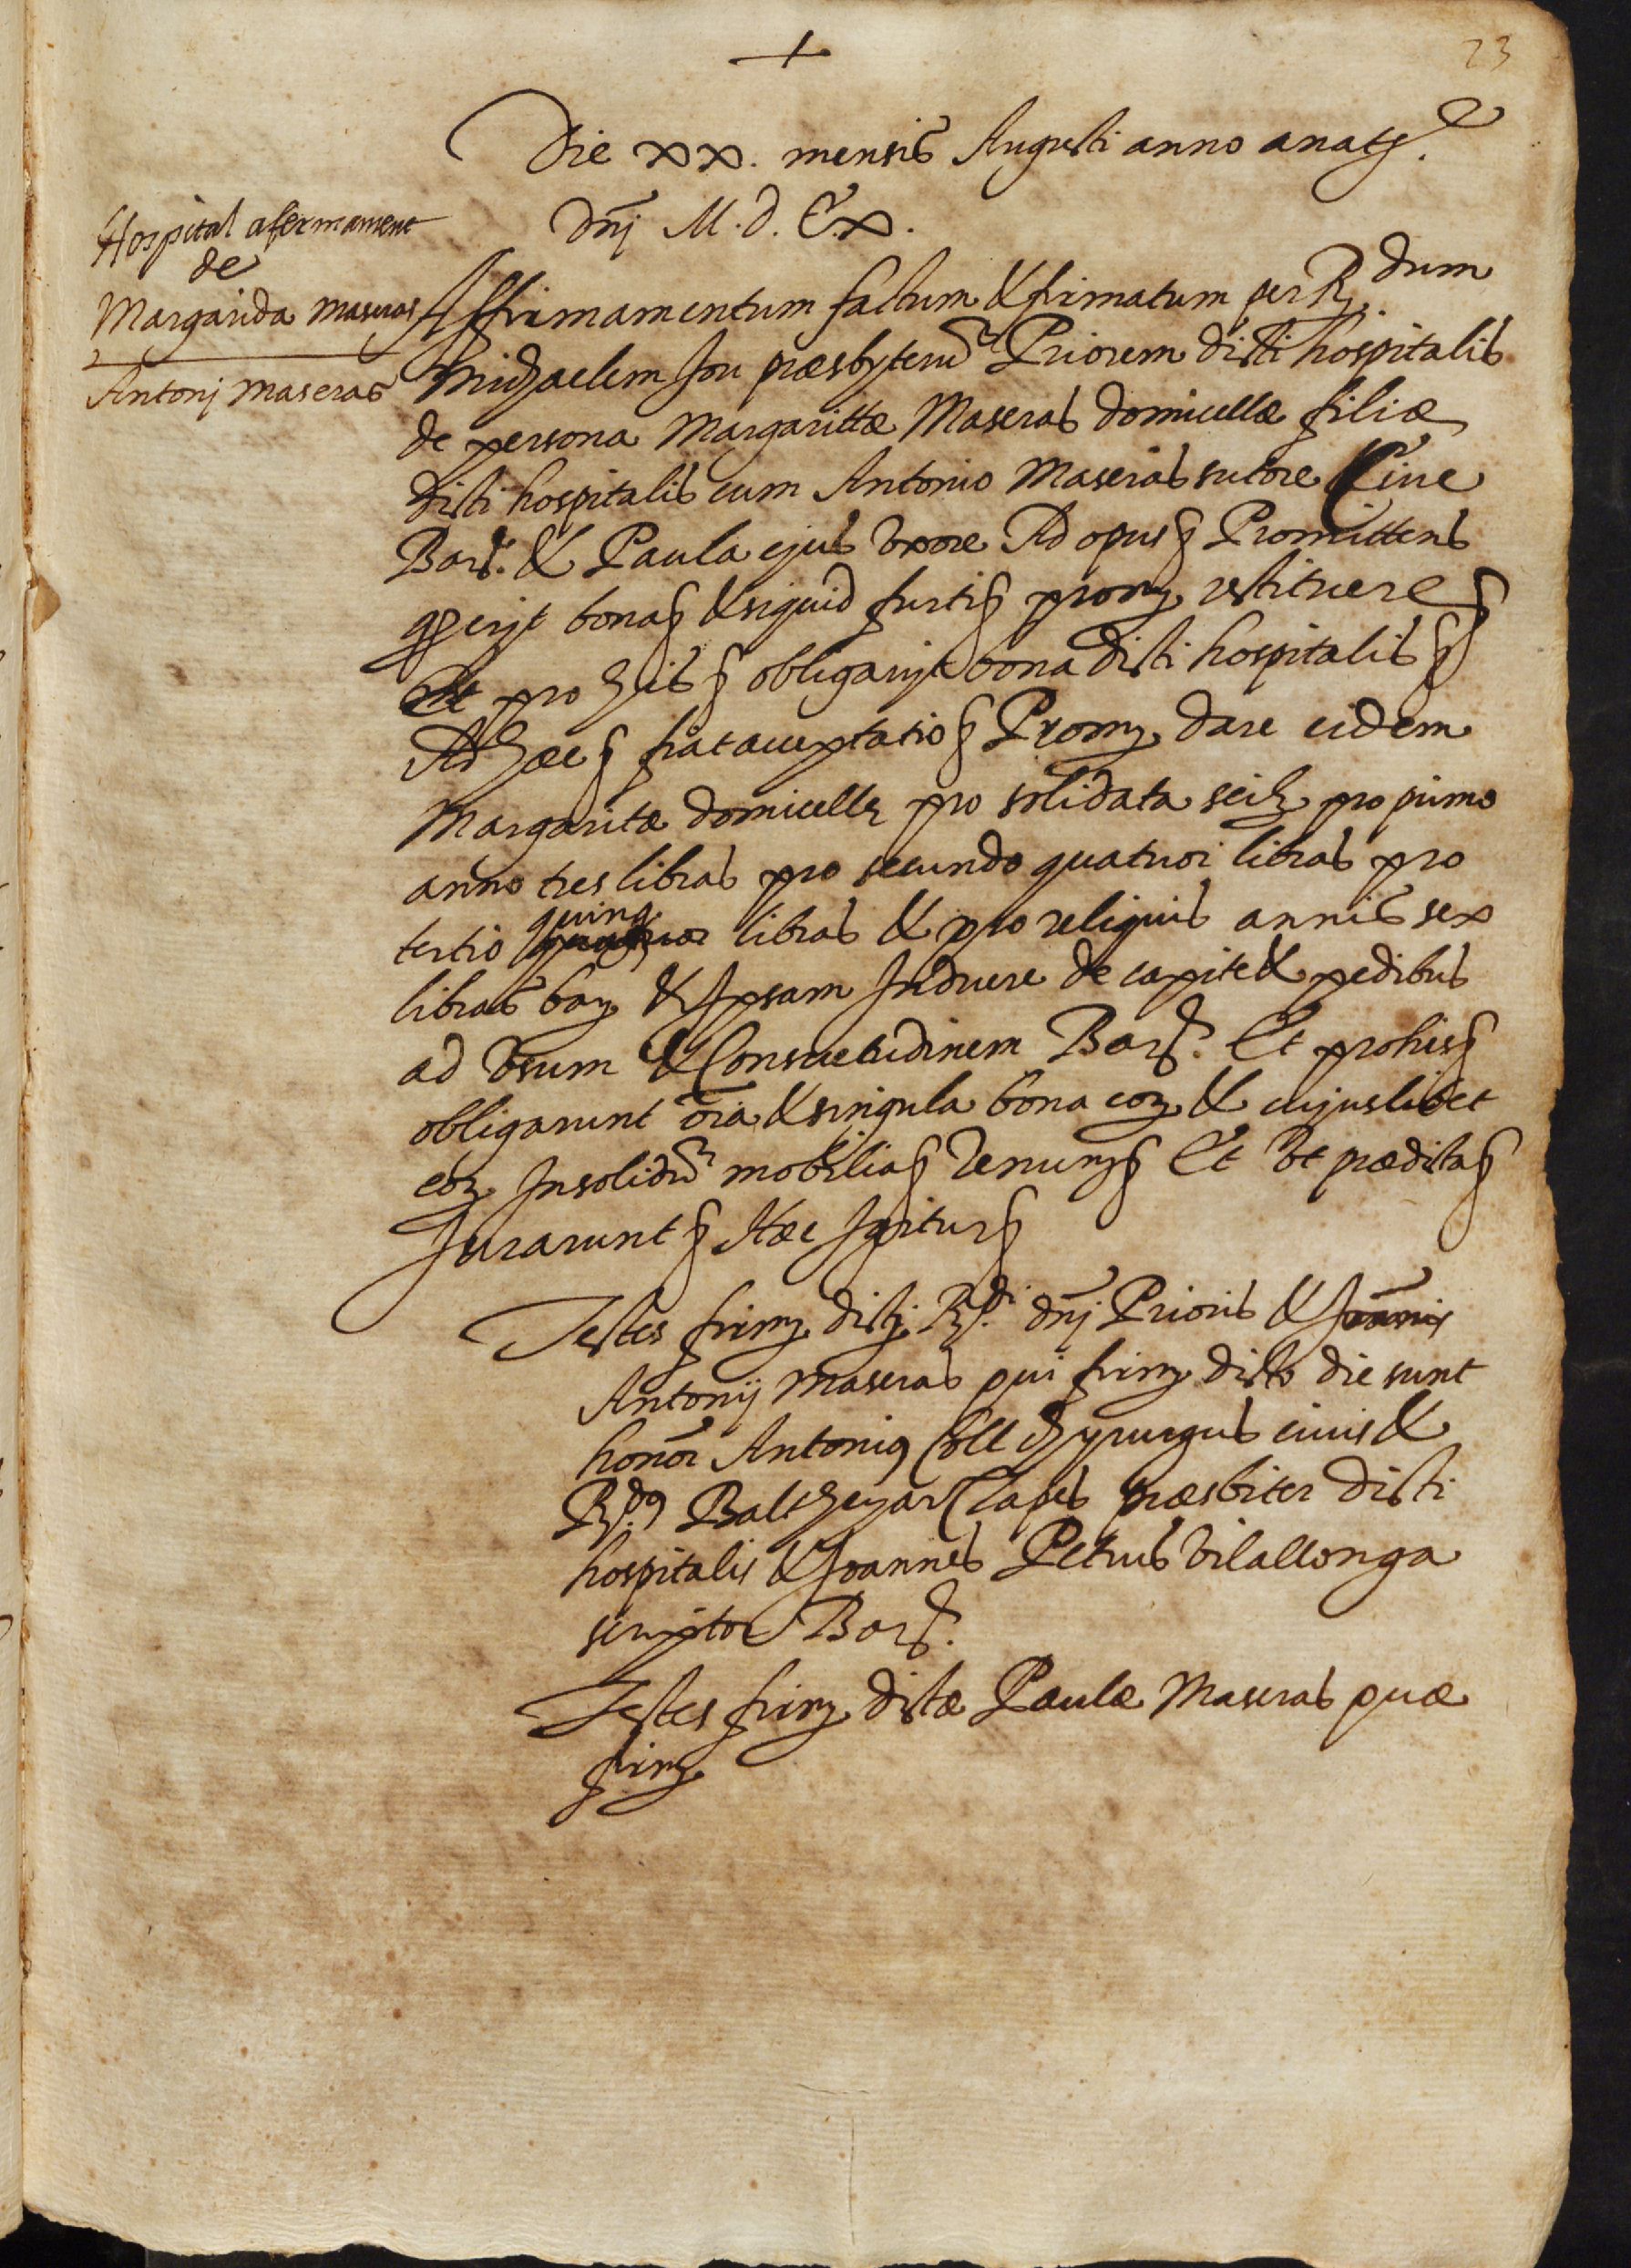 +
23
Die xx. mensis Augusti anno a nat.e
Dnj M.D.Lx.
Hospital afermament
de
Margarida Maseras
Antonj Maseras
Affirmamentum factum & firmatum per R.dum
Michaelem Jou præsbyterũ Priorem dicti hospitalis
de persona Margarittæ Maseras domicellæ filiæ
dicti hospitalis cum Antonio Maseras sutore Cive
Bar. & Paula ejus vxore Ad opus § Promittens
q erit bona § & siquid furti § prom restituere §
Et pro his § obligavit bona dicti hospitalis §
Ad hæc § fiat acceptatio § Prom dare eidem
Margaritæ domicellę pro solidata scilz pro primo
anno tres libras pro secundo quatuor libras pro
tertio quinq libras & pro reliquis annis sex
libras bar & Ipsam Induere de capite & pedibus
ad vsum & Consuetudinem Bar. Et pro his §
obligarunt oĩa & singula bona eoz & cujuslibet
eoz Insolidũ mobilia § Renun § Et vt prædicta §
Jurarunt § Hæc Igitur §
Testes firm dicti R.di dnj Prioris &
Antonij Maseras qui firm dicto die sunt
honor Antonius Coll chyrurgus civis &
R.dus Balthezar Clapes præsbiter dicti
hospitalis & Joannes Petrus Vilallonga
scriptor Bar.
Testes firm dictæ Paulæ Maseras quæ
firm